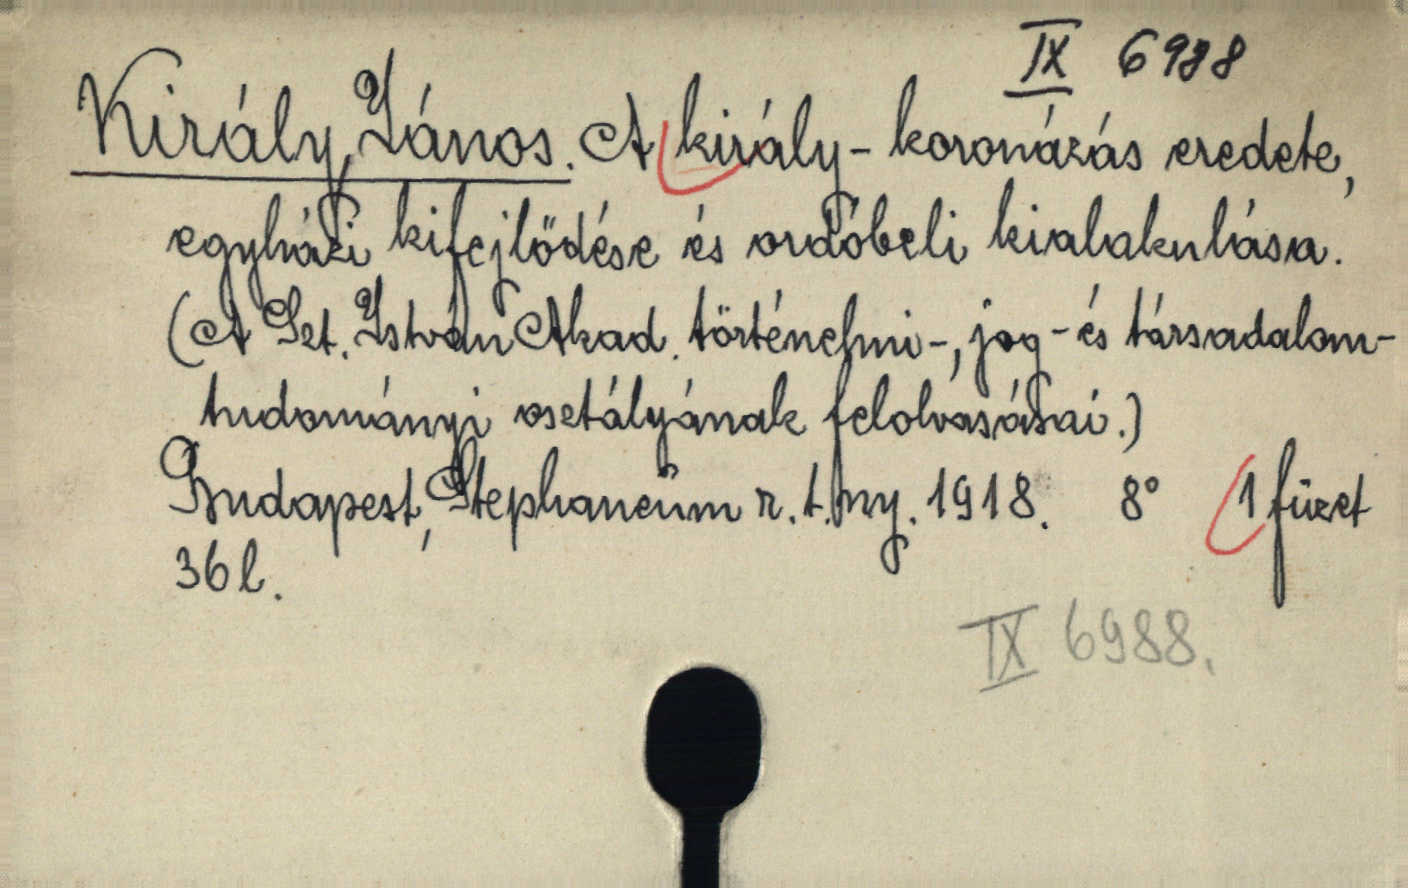 IX 6988
Király, János. A király-koronázás eredete,
egyházi kifejlődése és ordóbeli kialakulása.
(A Szt. István Akad. történelmi-, jog- és társadalom-
tudományi osztályának felolvasásai.)
Budapest, Stephaneum r. t. ny. 1918. 8° 1 füzet
36 l.
IX 6988.